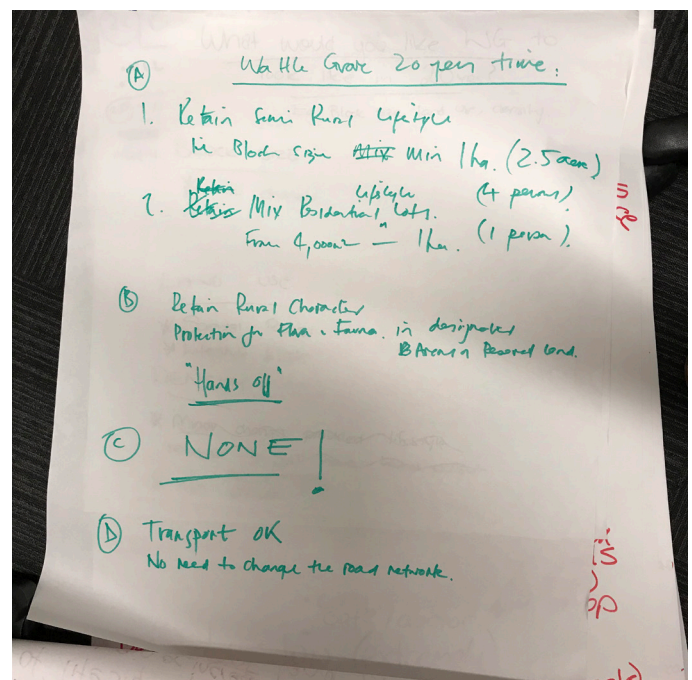 What would you like NG to
(A) Wattle Grove 20 years time:
1. Retain Semi Rural Lifestyle
ie Block size Mix Min 1ha. (2.5 acre)
Retain Lifestyle (4 persons)
2. Retain Mix Residential Lots.
From 4,000m2 — 1ha. (1 person).
(B) Retain Rural Character
Protection for Flora & Fauna. in designated
Areas Reserved land.
"Hands off"
(C) NONE!
(D) Transport OK
No need to change the road network.